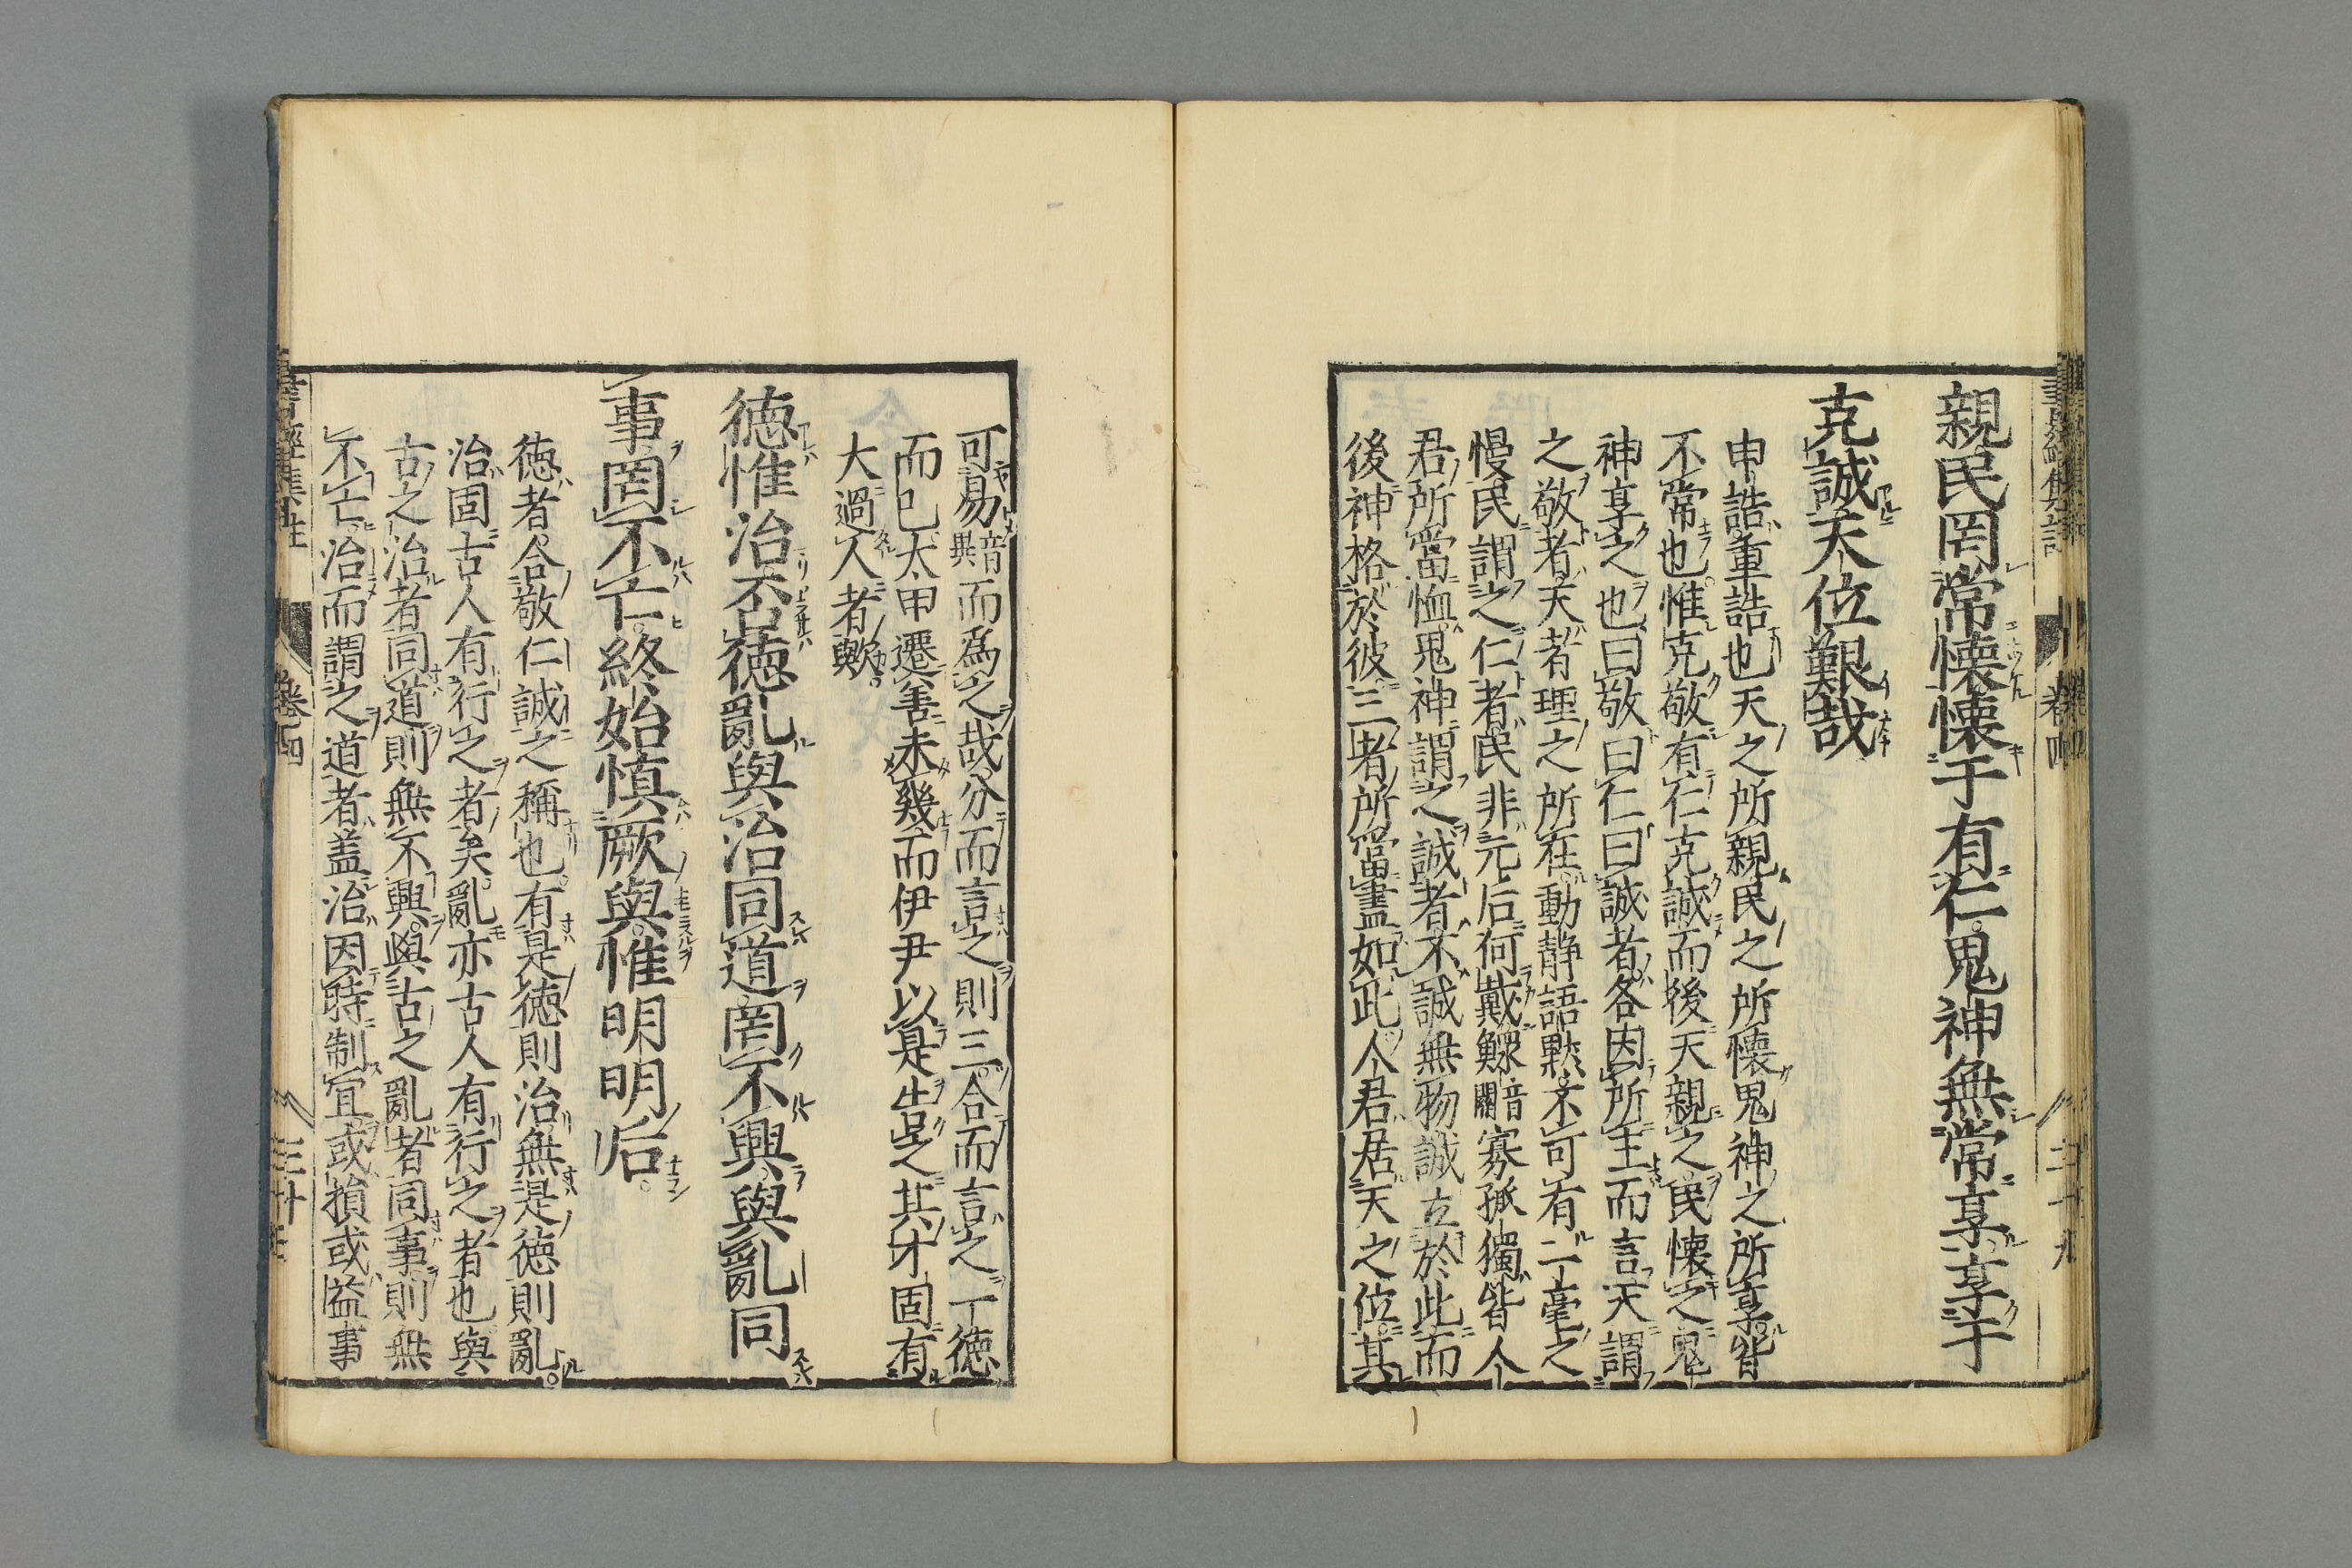 親民罔常懷懷于有仁鬼神無常享享于
克誠天位艱哉
申誥重誥也天之所親民之所懷鬼神之所享皆
不常也惟克敬有仁克誠而後天親之民懷之鬼
神享之也曰敬曰仁曰誠者各因所主而言天謂
之敬者天者理之所在動靜語默不可有一毫之
慢民謂之仁者民非元后何戴鰥音關寡孤獨皆人
君所當恤鬼神謂之誠者不誠無物誠立於此而
後神格於彼三者所當盡如此人君居天之位其
可易音異而爲之哉分而言之則三合而言之一德
而已太甲遷善未幾而伊尹以是告之其才固有
大過人者歟
德惟治否德亂與治同道罔不興與亂同
事罔不亡終始慎厥與惟明明后
德者合敬仁誠之稱也有是德則治無是德則亂
治固古人有行之者矣亂亦古人有行之者也與
古之治者同道則無不興與古之亂者同事則無
不亡治而謂之道者蓋治因時制宜或損或益事
書經集註 卷四